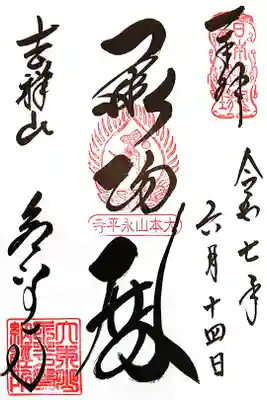 奉拝
令和七年
六月十四日
承陽殿
大本山永平寺
吉祥山
永平寺